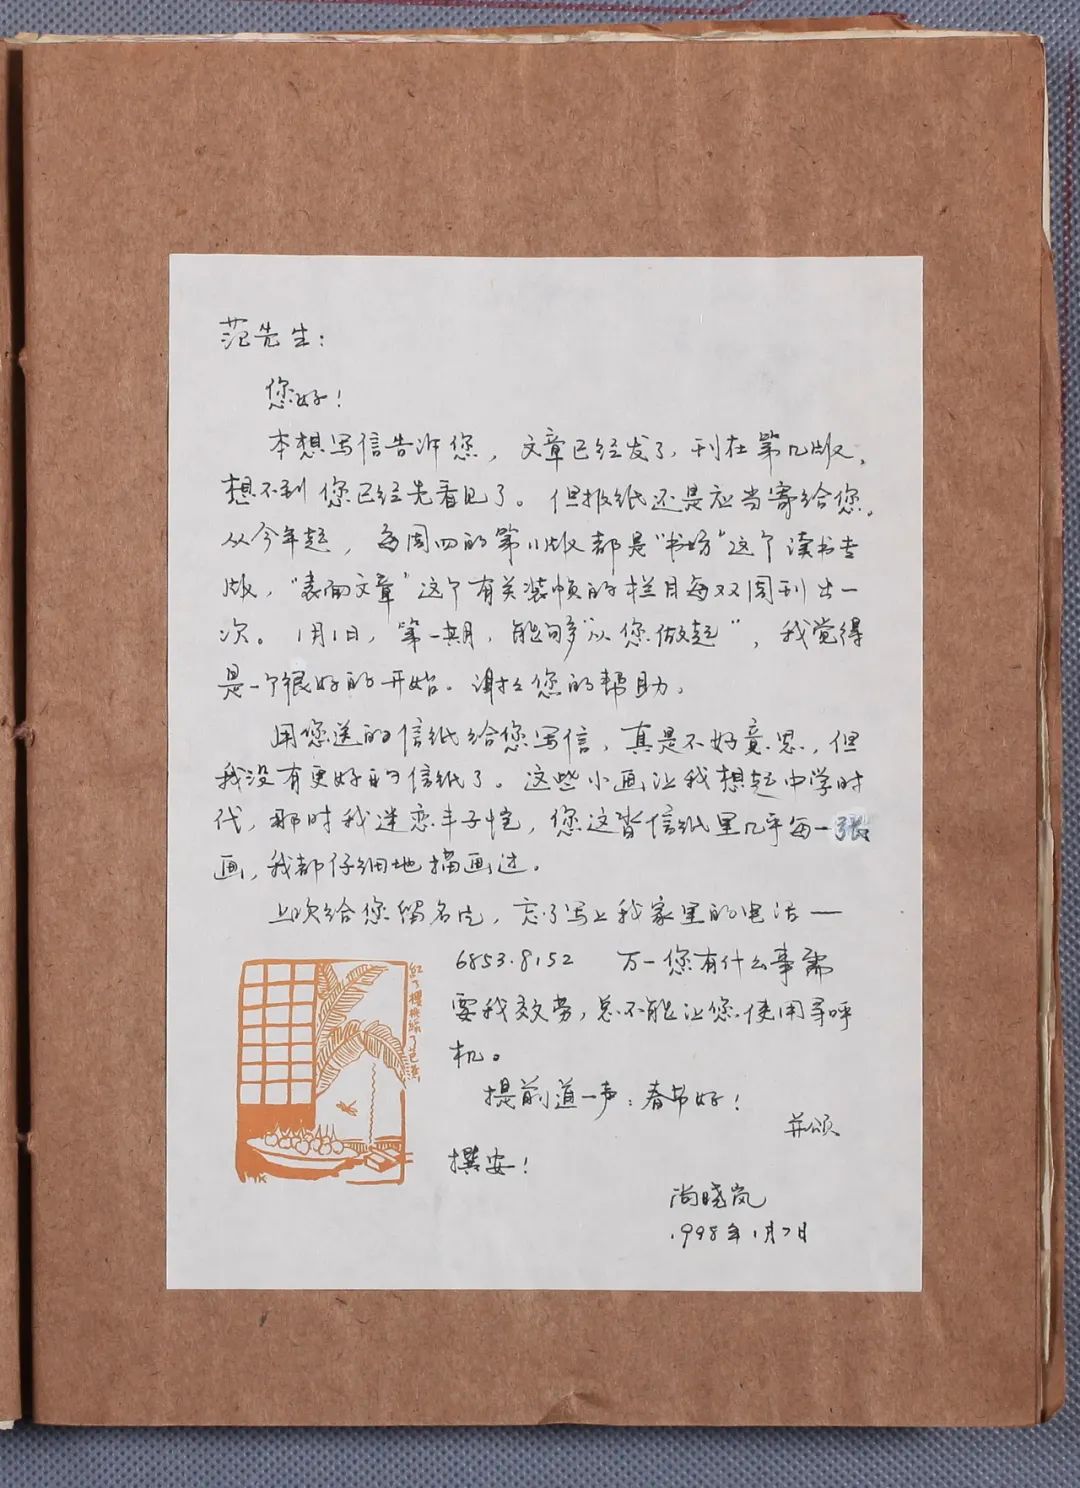 范先生：
您好！
本想写信告诉您，文章已经发了，刊在第几版，
想不到您已经先看见了。但报纸还是应当寄给您。
从今年起，每周四的第11版都是“书坊”这个读书专
版，“表面文章”这个有关装帧的栏目每双周刊出一
次。1月1日，第一期，能够“从您做起”，我觉得
是一个很好的开始。谢谢您的帮助。
用您送的信纸给您写信，真是不好意思，但
我没有更好的信纸了。这些小画让我想起中学时
代，那时我迷恋丰子恺，您这沓信纸里几乎每一张
画，我都仔细地描画过。
上次给您留名片，忘了写上我家里的电话——
6853.8152 万一您有什么事需
要我效劳，总不能让您使用寻呼
机。
提前道一声：春节好！
并颂
撰安！
尚晓岚
1998年1月7日
紅了櫻桃綠了芭蕉
TK